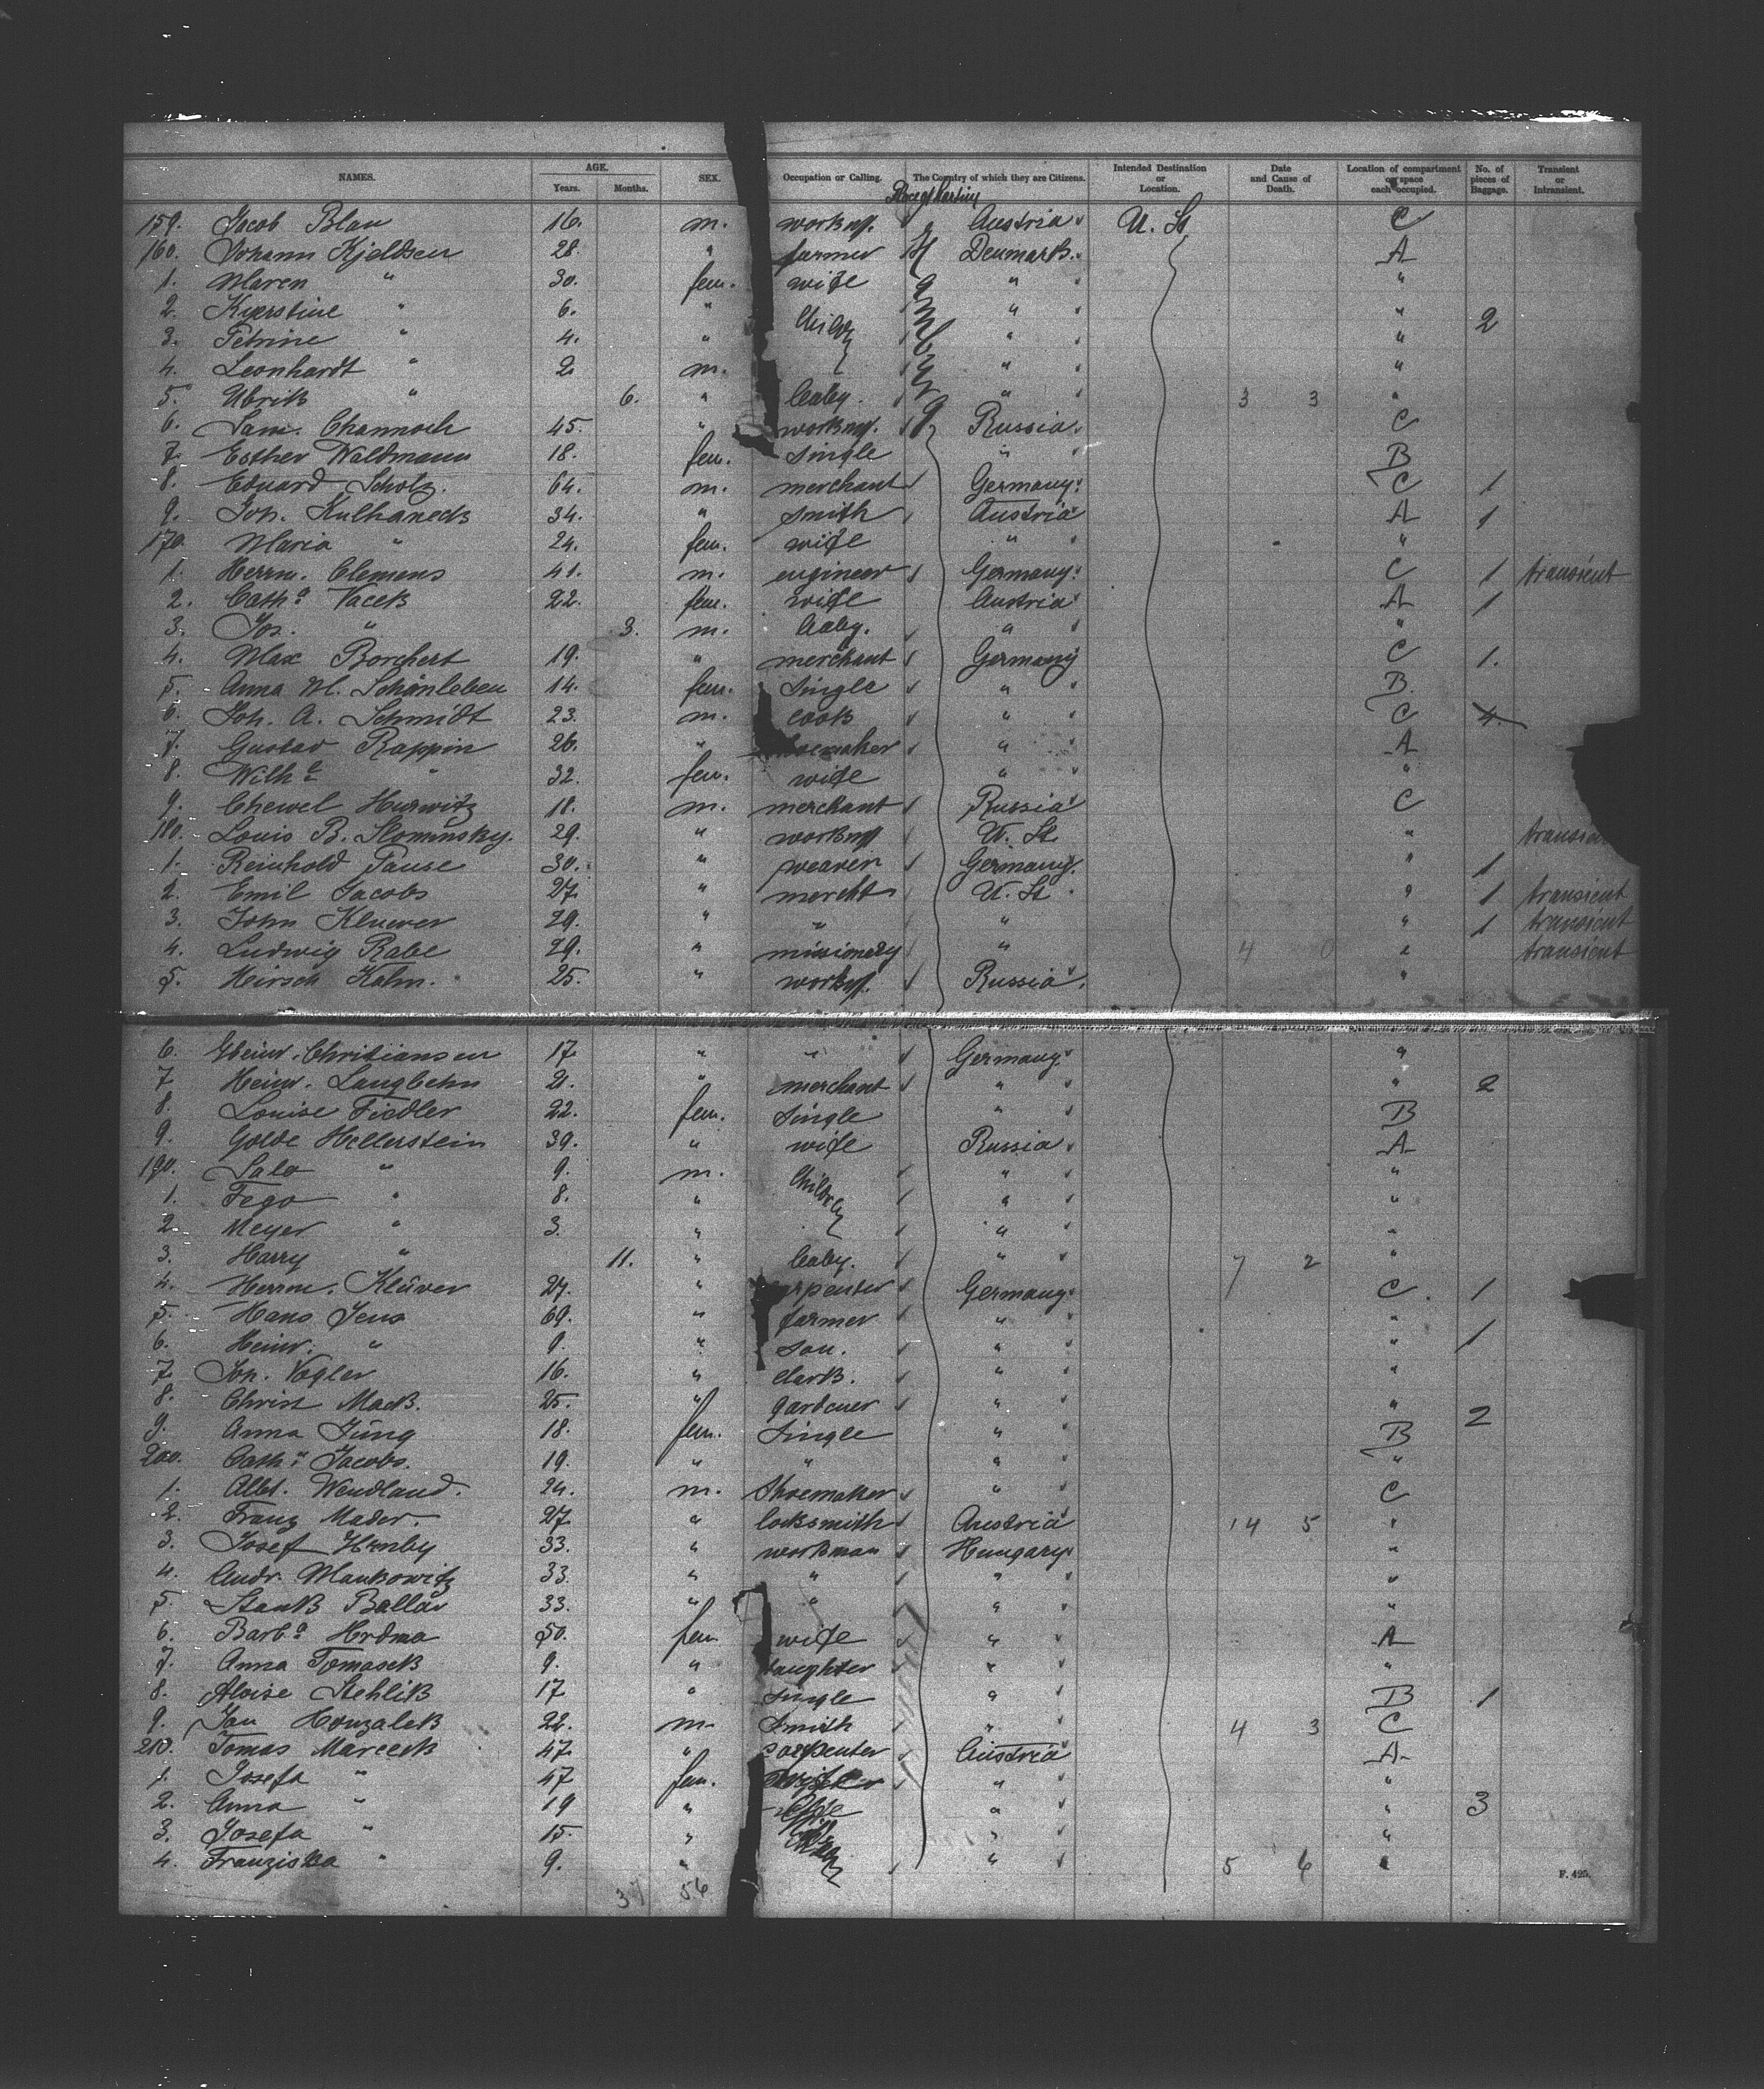 NAMES. AGE. Years. Months. SEX. Occupation or Calling. The Country of which they are Citizens. Intended Destination or Location. Date and Cause of Death. Location of compartment or space each occupied. No. of pieces of Baggage. Transient or Intransient.
159. Jacob Blau 16. m. workm. Austria U. St. C
160. Johann Kjeldsen 28. " farmer Denmark. A
1. Maren " 30. fem. wife " "
2. Kjerstine " 6. " Childr " " 2
3. Petrine " 4. " " "
4. Leonhardt " 2. m. " "
5. Ulrik " 6. " baby. " 3 3 "
6. Sam. Channoch 45. " workm. Russia. C
7. Esther Waldmann 18. fem. single " B
8. Eduard Scholz. 64. m. merchant Germany. C 1
9. Joh. Kulhaneck 34. " smith Austria A 1
170. Maria " 24. fem. wife " "
1. Herrm. Clemens 41. m. engineer Germany. C 1 transient
2. Catha Vacek 22. fem. wife Austria A 1
3. Jos. " 3. m. baby. " "
4. Max Borchert 19. " merchant Germany C 1.
5. Anna M. Schönleben 14. fem. single " B.
6. Joh. A. Schmidt 23. m. cook " C 4
7. Gustav Rappin 26. " shoemaker " A
8. Wilhe " 32. fem. wife " "
9. Chewel Hurwitz 18. m. merchant Russia C
180. Louis B. Slominsky. 29. " workm U. St. " transient
1. Reinhold Pause 30. " weaver Germany. " 1
2. Emil Jacobs 27. " mercht U. St. " 1 transient
3. John Kluever 29. " " " " 1 transient
4. Ludwig Rabe 29. " missionary " 4 0 " transient
5. Heirsch Kahn. 25. " workm. Russia. "
6. Heinr. Christiansen 17. " " Germany. "
7. Heinr. Langbehn 21. " merchant " " 2
8. Louise Fiedler 22. fem. single " B
9. Golde Hellerstein 39. " wife Russia A
190. Salo " 9. m. Childr " "
1. Fego " 8. " " "
2. Meyer " 3. " " "
3. Harry " 11. " baby. " 7 2 "
4. Herrm. Klüver 27. " carpenter Germany. C. 1
5. Hans Jens 69. " farmer " "
6. Heinr. " 9. " son. " " 1
7. Joh. Vogler 16. " clark. " "
8. Christ Mack. 25. " gardener " " 2
9. Anna Jung 18. fem. single " B
200. Catha Jacobs. 19. " " " "
1. Albt. Wendland. 24. m. shoemaker " C
2. Franz Mader. 27. " locksmith Austria 14 5 "
3. Josef Hrnby 33. " workman Hungary "
4. Andr. Mankowitz 33. " " " "
5. Stank Ballar 33. " " " "
6. Barba Hrdma 50. fem wife " A
7. Anna Tomasek 9. " daughter " "
8. Aloise Stehlik 17 " single " B 1
9. Jan Honzalek 22. m. smith " 4 3 C
210. Tomas Mareck 47. " carpenter Austria A
1. Josefa " 47 fem. wife " "
2. Anna " 19 " " " 3
3. Josefa " 15. " " "
4. Franziska " 9. " " 5 6 "
37 56
F. 425.